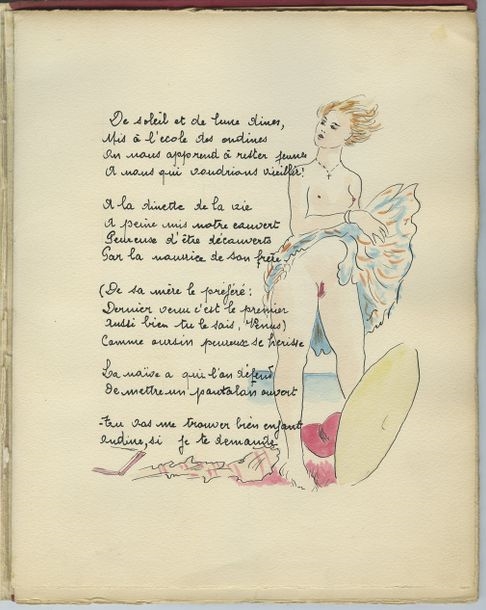 De soleil et de lune dînes,
Mis à l'école des ondines
On nous apprend à rester jeunes
A nous qui voudrions vieillir!
A la dinette de la vie
A peine mis notre couvert
Peureuse d'être découverte
Par la nourrice de son frère
(De sa mère le préféré:
Dernier venu c'est le premier
Aussi bien tu le sais, Vénus)
Comme oursin peureux se hérisse
La naïve a qui l'on défend
De mettre un pantalon ouvert
-Tu vas me trouver bien enfant
ondine, si je te demande